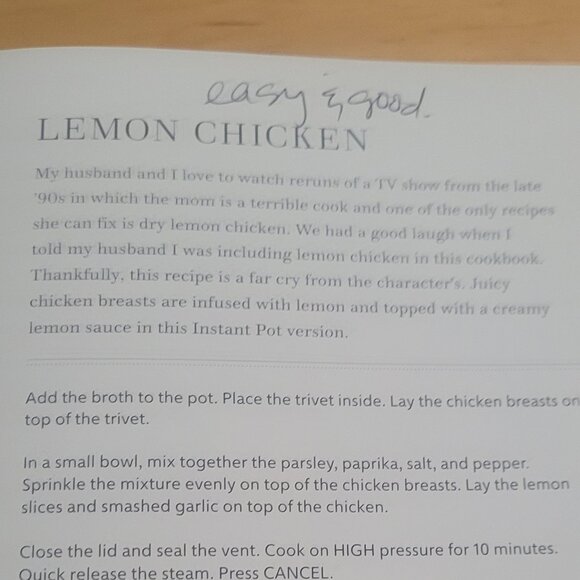 easy & good.
LEMON CHICKEN
My husband and I love to watch reruns of a TV show from the late
'90s in which the mom is a terrible cook and one of the only recipes
she can fix is dry lemon chicken. We had a good laugh when I
told my husband I was including lemon chicken in this cookbook.
Thankfully, this recipe is a far cry from the character's. Juicy
chicken breasts are infused with lemon and topped with a creamy
lemon sauce in this Instant Pot version.
Add the broth to the pot. Place the trivet inside. Lay the chicken breasts on
top of the trivet.
In a small bowl, mix together the parsley, paprika, salt, and pepper.
Sprinkle the mixture evenly on top of the chicken breasts. Lay the lemon
slices and smashed garlic on top of the chicken.
Close the lid and seal the vent. Cook on HIGH pressure for 10 minutes.
Quick release the steam. Press CANCEL.